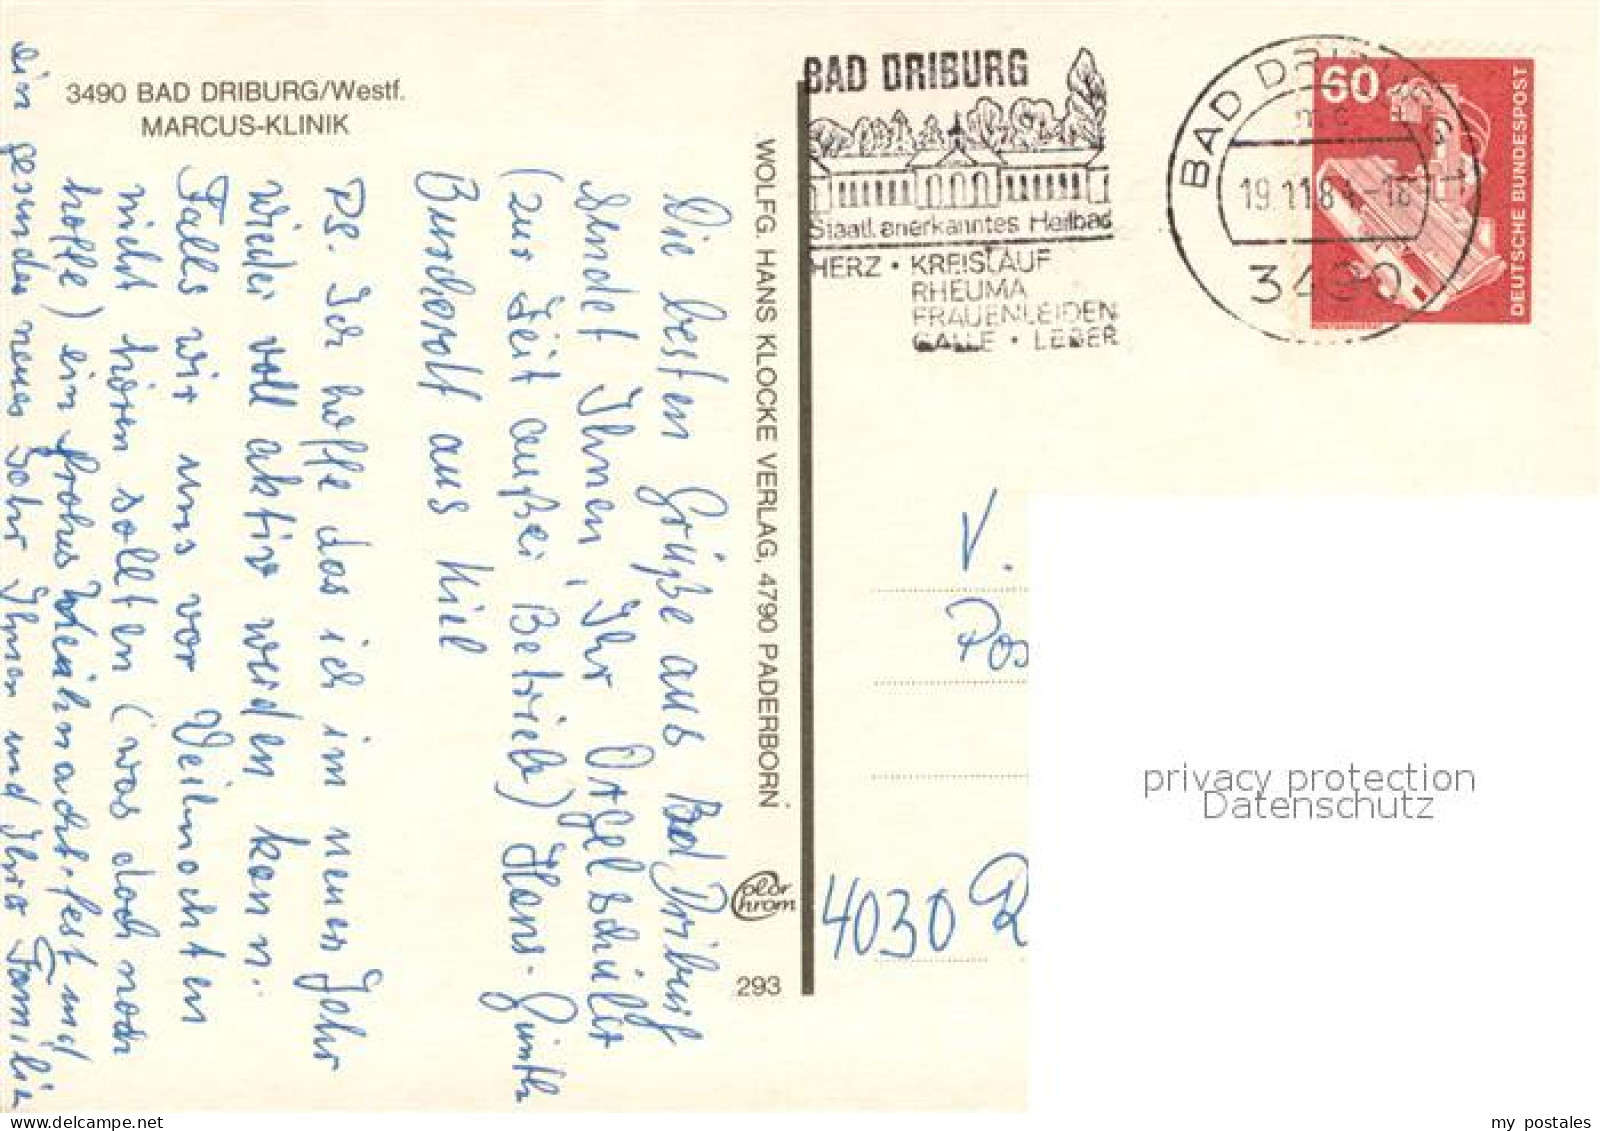 3490 BAD DRIBURG/Westf.
MARCUS-KLINIK
Die besten Grüße aus Bad Driburg
sendet Ihnen, Ihr Orgelschüler
(zur Zeit außer Betrieb) Hans-Günth
aus Kiel
PS. Ich hoffe das ich im neuen Jahr
wieder voll aktiv werden kann.
Falls wir uns vor Weihnachten
nicht hören sollten (was doch
hoffe) ein frohes Weihnachtsfest und
ein gesundes neues Jahr Ihnen und Ihrer Familie
WOLFG. HANS KLOCKE VERLAG, 4790 PADERBORN
Color
Chrom
293
BAD DRIBURG
Staatl. anerkanntes Heilbad
HERZ • KREISLAUF
RHEUMA
FRAUENLEIDEN
GALLE • LEBER
BAD DRIBURG
19.11.8
3490
60
DEUTSCHE BUNDESPOST
V.
Pos
4030 R
privacy protection
Datenschutz
delcampe.net
my_postales